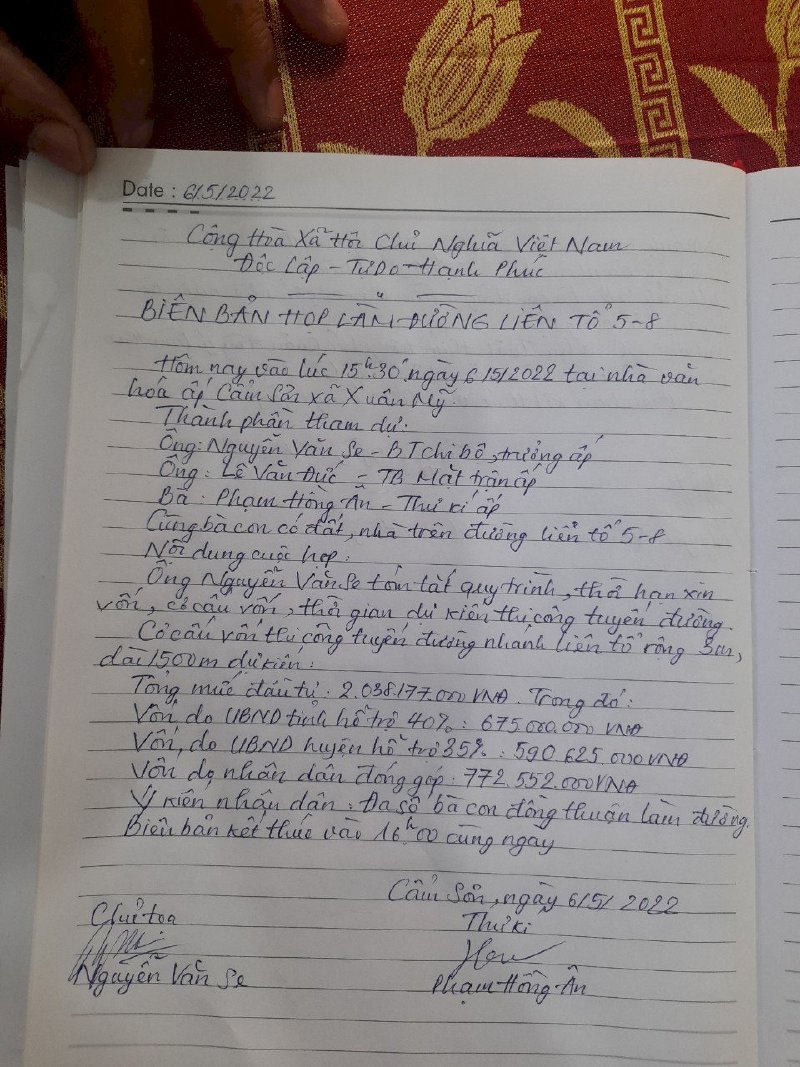 Date : 6/5/2022
Cộng Hòa Xã Hội Chủ Nghĩa Việt Nam
Độc Lập - Tự Do - Hạnh Phúc
BIÊN BẢN HỌP LÀM ĐƯỜNG LIÊN TỔ 5-8
Hôm nay vào lúc 15h30' ngày 6/5/2022 tại nhà văn
hóa ấp Cẩm Sơn xã Xuân Mỹ.
Thành phần tham dự:
Ông: Nguyễn Văn Se - BT chi bộ, trưởng ấp
Ông: Lê Văn Đức - TB Mặt trận ấp
Bà: Phạm Hồng Ân - Thư kí ấp
Cùng bà con có đất, nhà trên đường liên tổ 5-8
Nội dung cuộc họp:
Ông Nguyễn Văn Se tóm tắt quy trình, thời hạn xin
vốn, cơ cấu vốn, thời gian dự kiến thi công tuyến đường.
Cơ cấu vốn thi công tuyến đường nhánh liên tổ rộng 3m,
dài 1500m dự kiến:
Tổng mức đầu tư: 2.038.177.000 VNĐ. Trong đó:
Vốn do UBND tỉnh hỗ trợ 40%: 675.000.000 VNĐ
Vốn do UBND huyện hỗ trợ 35%: 590.625.000 VNĐ
Vốn do nhân dân đóng góp: 772.552.000 VNĐ
Ý kiến nhân dân: Đa số bà con đồng thuận làm đường.
Biên bản kết thúc vào 16h00 cùng ngày
Cẩm Sơn, ngày 6/5/2022
Chủ tọa
Thư kí
Nguyễn Văn Se
Phạm Hồng Ân